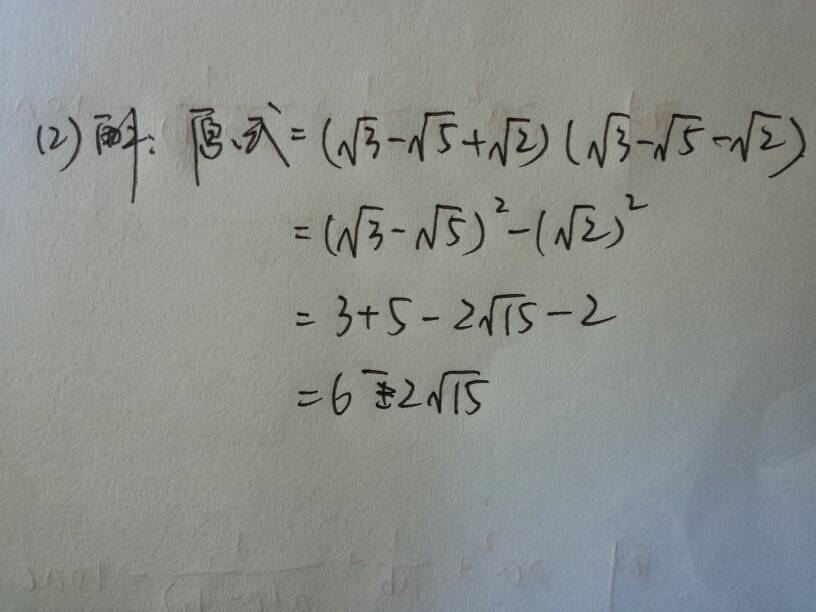 (2) 解：原式=(√3-√5+√2)(√3-√5-√2)
=(√3-√5)²-(√2)²
=3+5-2√15-2
=6-2√15